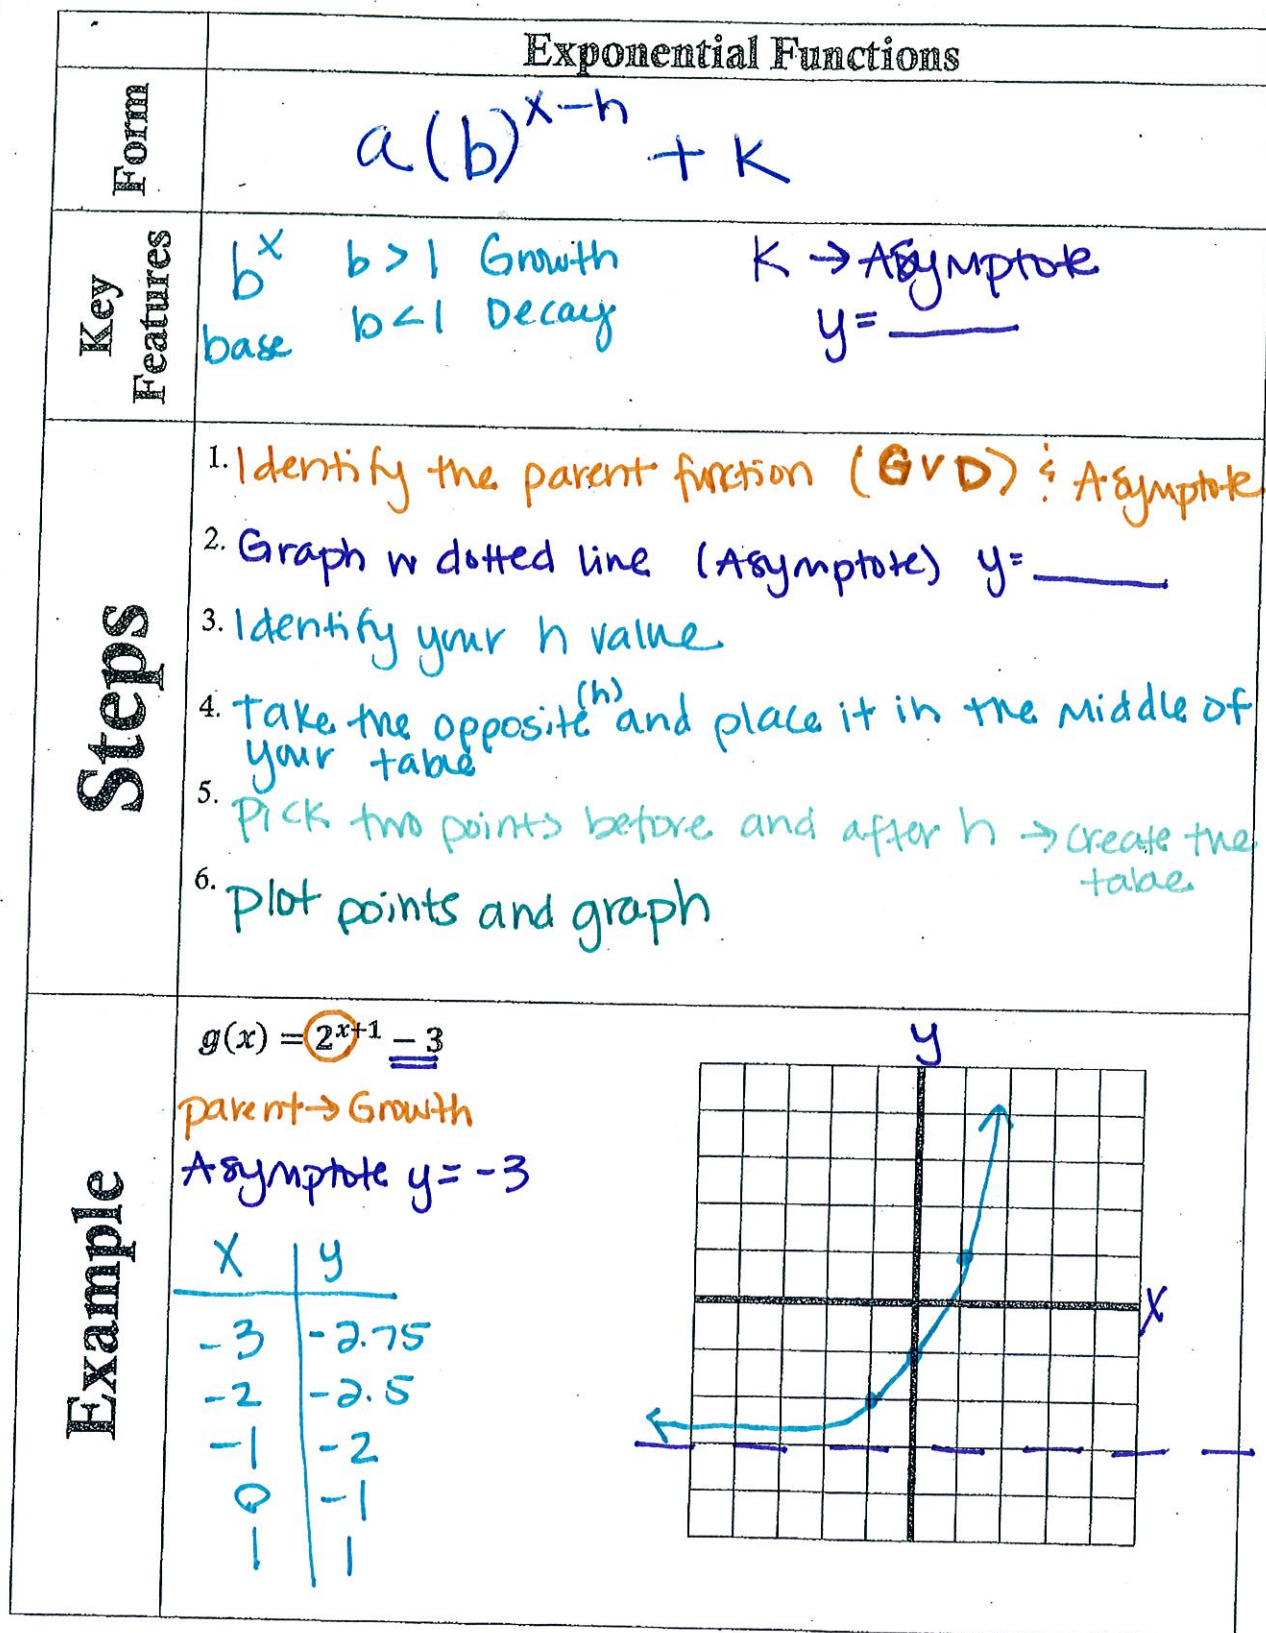 Exponential Functions
Form
a(b)^(x-h) + K
Key
Features
b^x b>1 Growth
base b<1 Decay
K → Asymptote
y= ____
Steps
1. Identify the parent function (GVD) & Asymptote
2. Graph w dotted line (Asymptote) y= ____
3. Identify your h value
4. Take the opposite (h) and place it in the Middle of
your table
5. Pick two points before and after h → create the
table
6. Plot points and graph
Example
g(x) = 2^(x+1) - 3
parent → Growth
Asymptote y= -3
X y
-3 -2.75
-2 -2.5
-1 -2
0 -1
1 1
y
X